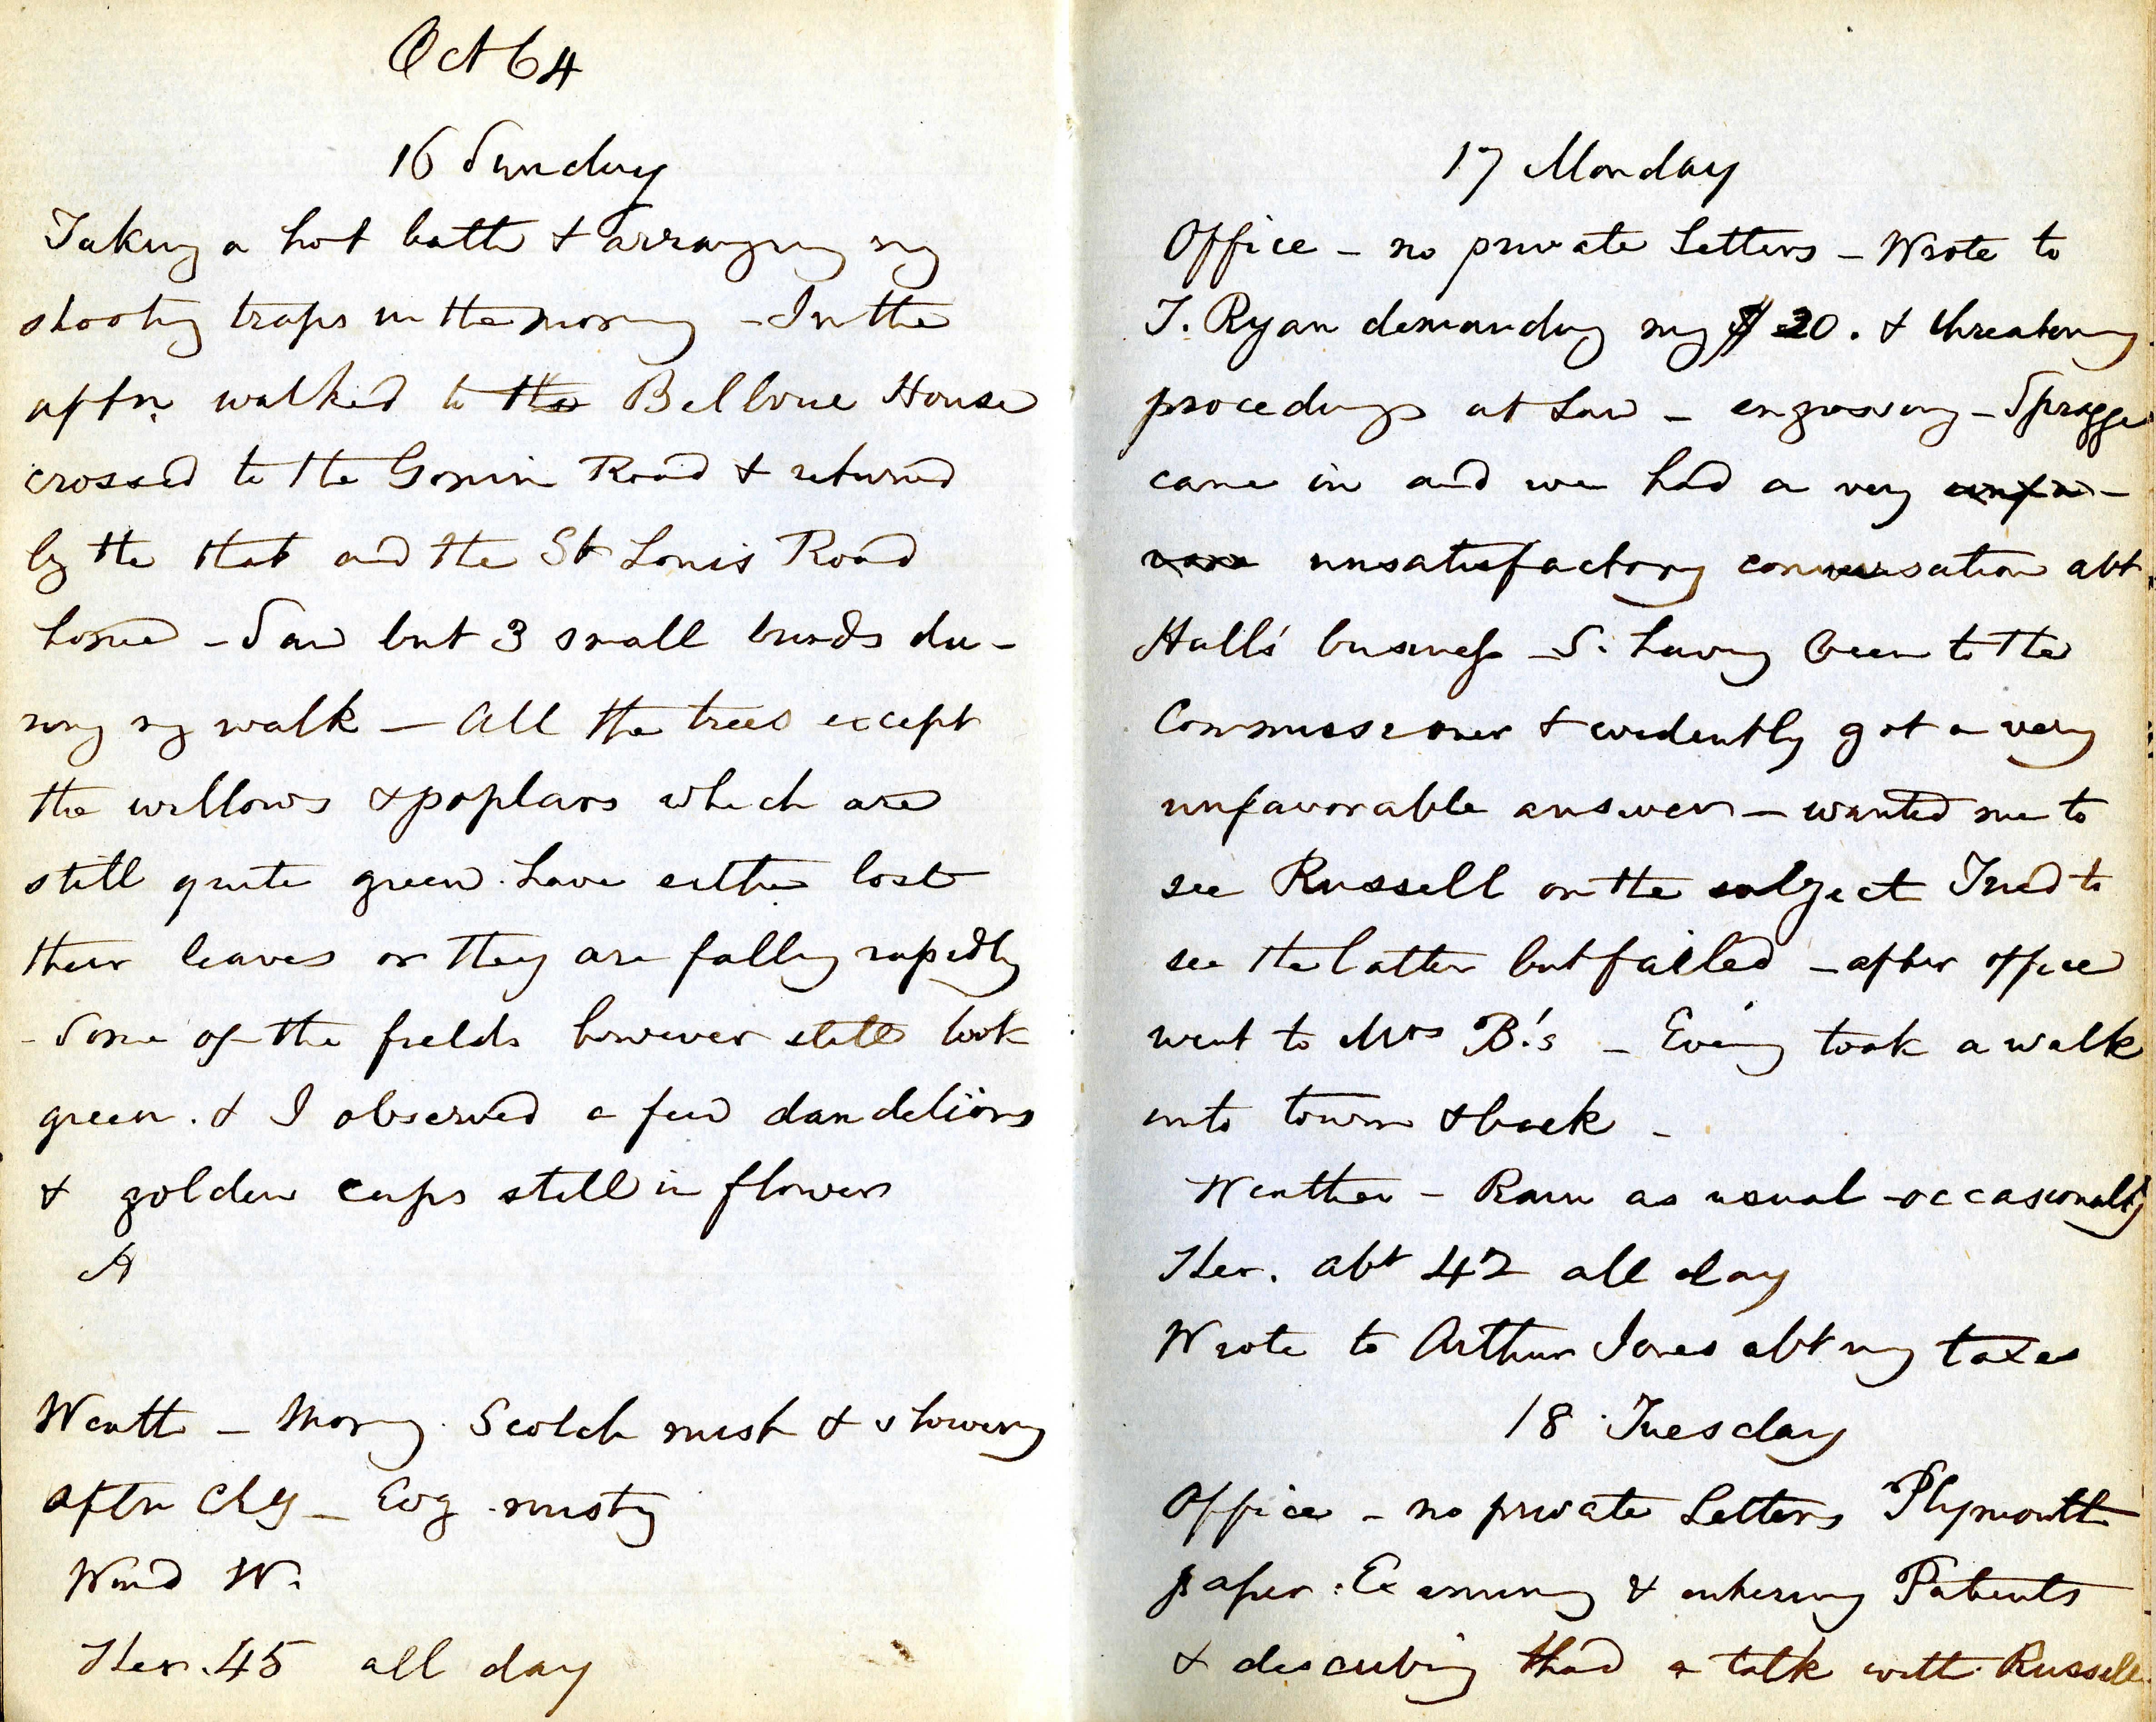 Oct 64
16 Sunday
Taking a hot bath & arranging my
shooting traps in the morning - In the
aftn. walked to the Bellvue House
crossed to the Gomin Road & returned
by the that and the St Louis Road
home - Saw but 3 small birds du-
ring my walk - All the trees except
the willows & poplars which are
still quite green. have either lost
their leaves or they are falling rapidly
- Some of the fields however still look
green. & I observed a few dandelions
& golden cups still in flower
A
Weath - Morng. Scotch mist & showery
aftn Cldy - Evg. misty
Wind W.
Ther. 45 all day
17 Monday
Office - no private Letters - Wrote to
T. Ryan demanding my $ 20. & threatening
procedings at Law - engrossing - Spragge
came in and we had a very unfa-
vora unsatisfactory conversation abt.
Hall's business - S. having been to the
Commissioner & evidently got a very
unfavorable answer - wanted me to
see Russell on the subject Tried to
see the latter but failed - after office
went to Mrs B.'s - Ev'ing took a walk
into town & back -
Weather - Rain as usual - occasionally
Ther. abt 42 all day
Wrote to Arthur Jones abt my taxes
18 Tuesday
Office - no private Letters Plymouth
paper. Examining & entering Patents
& describing & had a talk with Russell